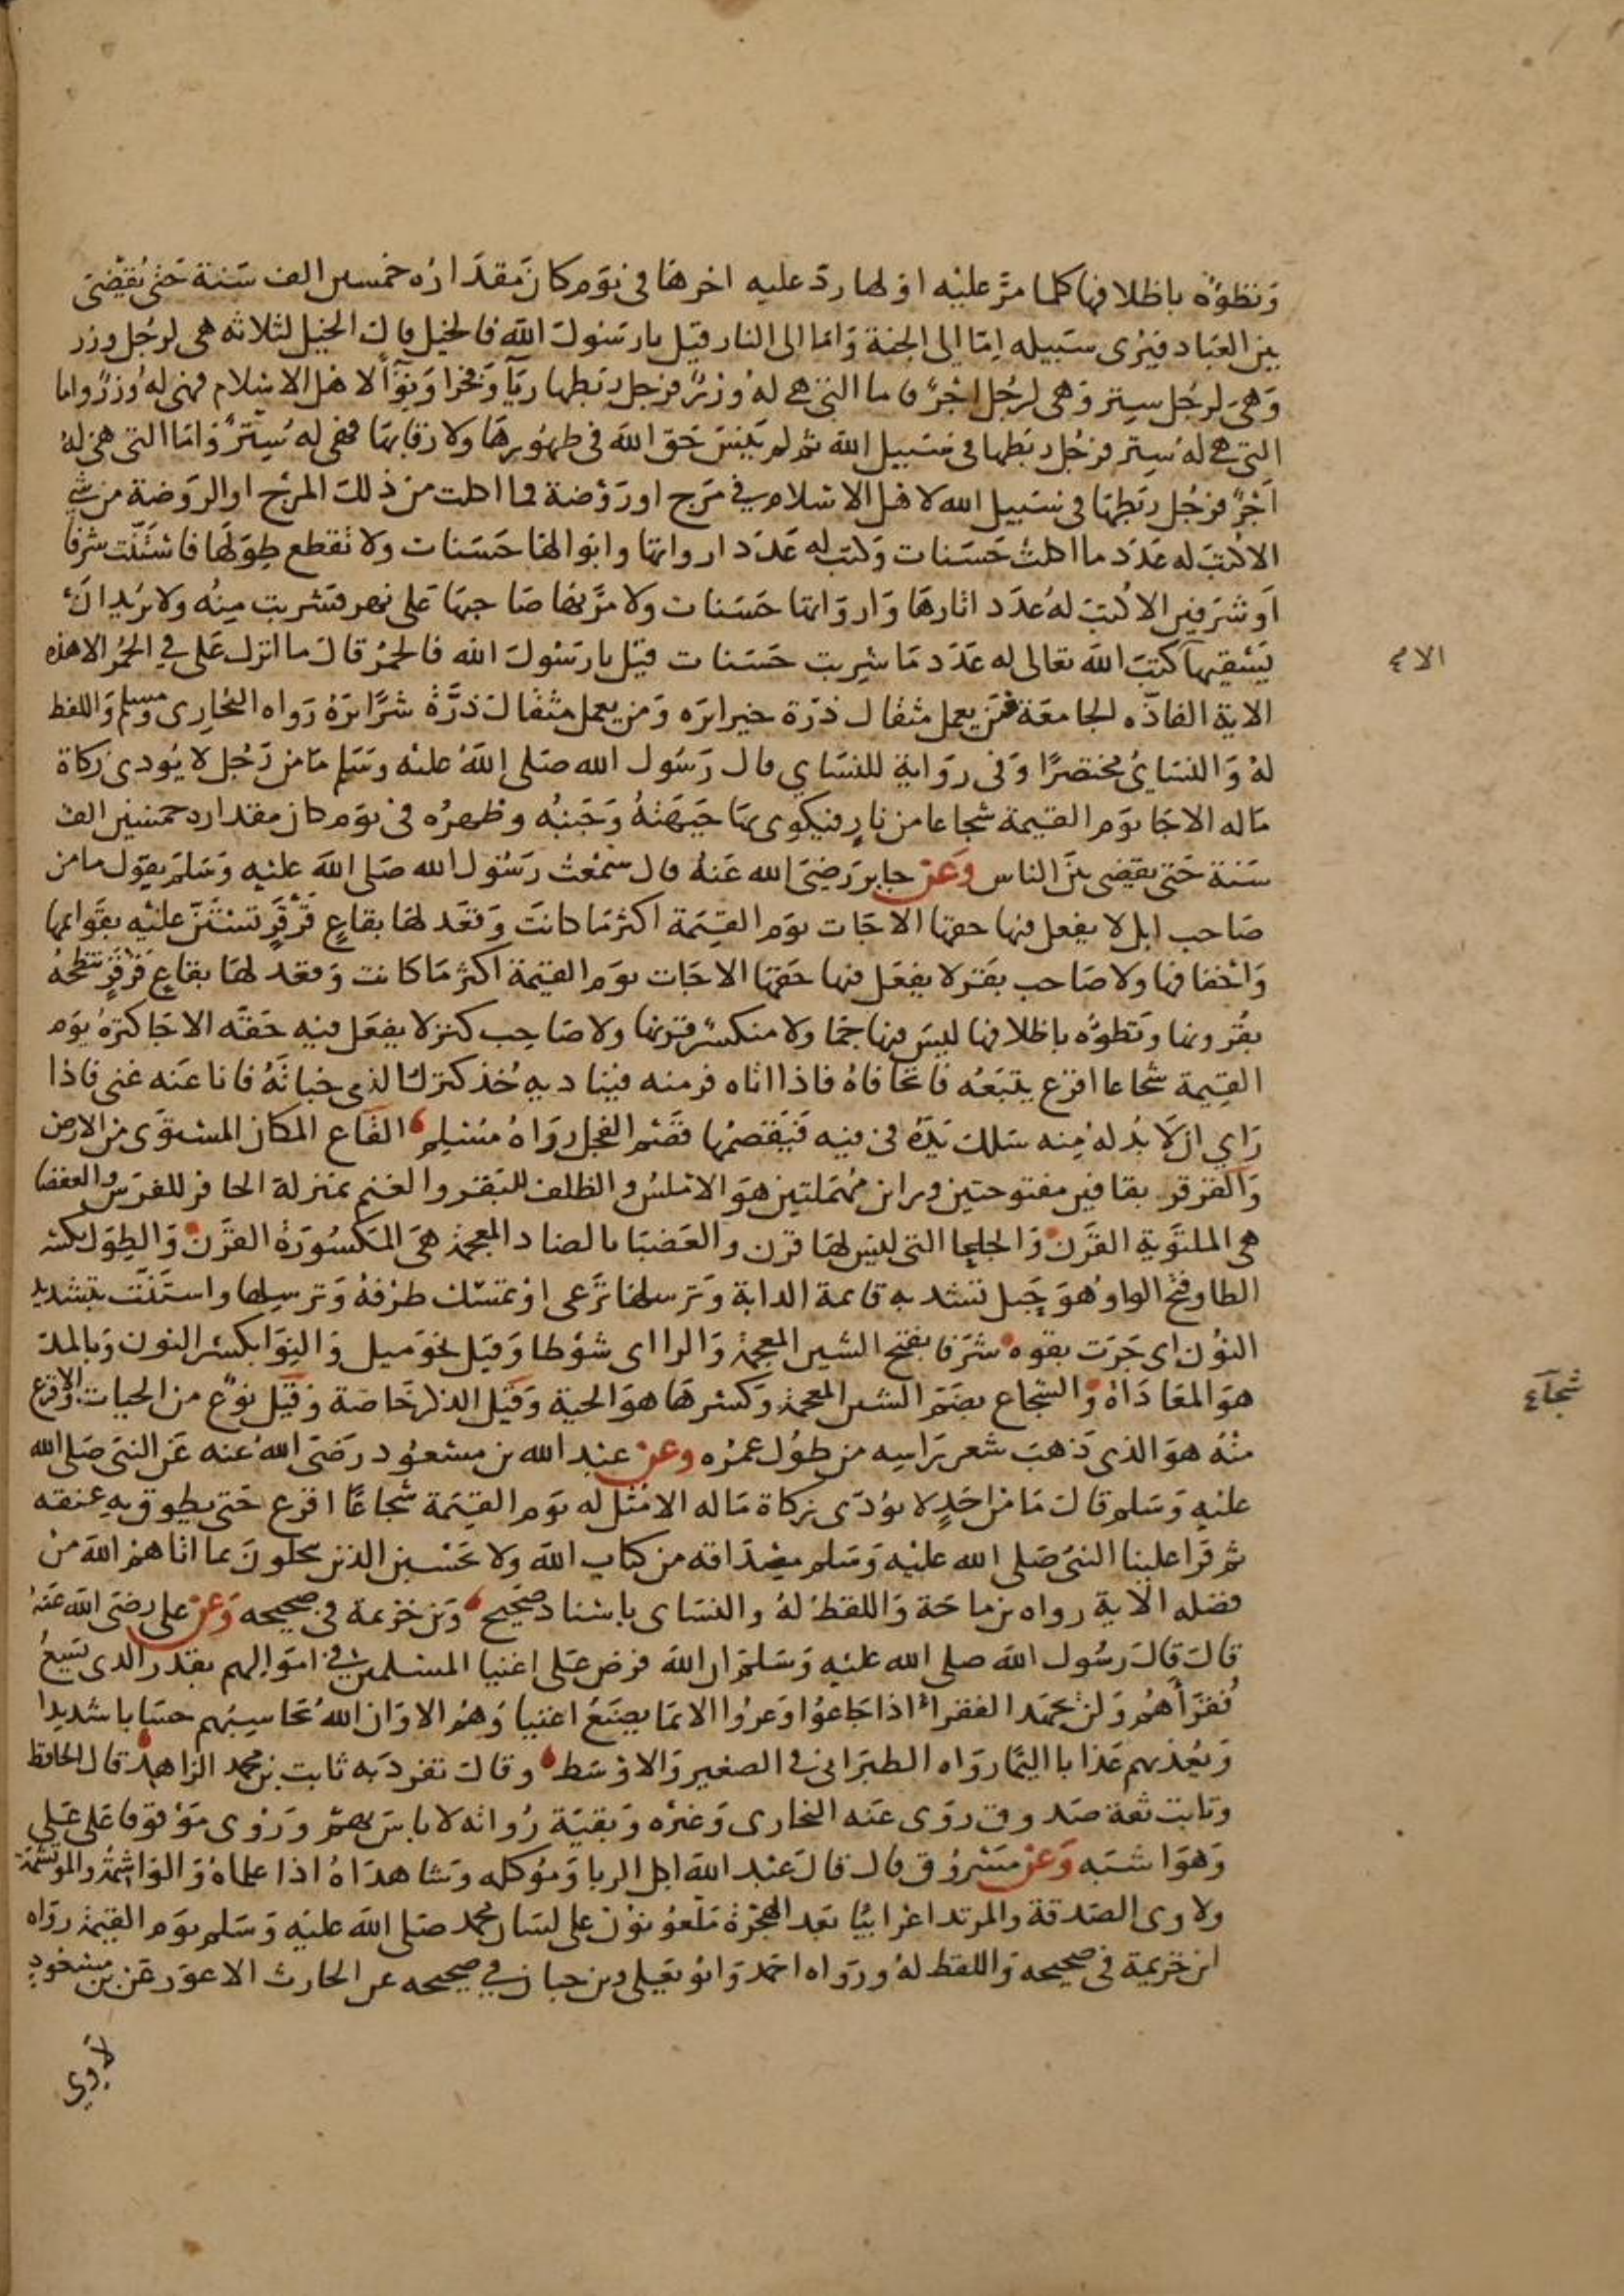 وتطؤه باظلافها كلما مر عليه اولها رد عليه اخرها في يوم كان مقداره خمسين الف سنة حتى يقضى
بين العباد فيرى سبيله اما الى الجنة واما الى النار قيل يا رسول الله فالخيل قال الخيل لثلاثه هي لرجل وزر
وهي لرجل ستر وهي لرجل اجر فاما التي هي له وزر فرجل ربطها ريآ وفخرا ونوآ لاهل الاسلام فهي له وزر واما
التي هي له ستر فرجل ربطها في سبيل الله ثم لم ينس حق الله في ظهورها ولا رقابها فهي له ستر واما التي هي له
اجر فرجل ربطها في سبيل الله لاهل الاسلام في مرج او روضة فما اكلت من ذلك المرج او الروضة من شي
الا كتب له عدد ما اكلت حسنات وكتب له عدد ارواثها وابوالها حسنات ولا تقطع طولها فاستنت شرفا
او شرفين الا كتب له عدد اثارها وارواثها حسنات ولا مر بها صاحبها على نهر فشربت منه ولا يريد ان
يسقيها كتب الله تعالى له عدد ما شربت حسنات قيل يا رسول الله فالحمر قال ما انزل علي في الحمر الا هذه
الاية الفاذه الجامعة فمن يعمل مثقال ذرة خيرا يره ومن يعمل مثقال ذرة شرا يره رواه البخاري ومسلم واللفظ
له والنسائي مختصرا وفي رواية للنساي قال رسول الله صلى الله عليه وسلم ما من رجل لا يودي زكاة
ماله الا جا يوم القيمة شجاعا من نار فيكوى بها جبهته وجنبه وظهره في يوم كان مقداره خمسين الف
سنة حتى يقضى بين الناس وعن جابر رضي الله عنه قال سمعت رسول الله صلى الله عليه وسلم يقول ما من
صاحب ابل لا يفعل فيها حقها الا جات يوم القيمة اكثر ما كانت وقعد لها بقاع قرقر تستن عليه بقوائها
واخفافها ولا صاحب بقر لا يفعل فيها حقها الا جات يوم القيمة اكثر ما كانت وقعد لها بقاع قرقر تنطحه
بقرونها وتطؤه باظلافها ليس فيها جما ولا منكسر قرنها ولا صاحب كنز لا يفعل فيه حقه الا جا كنزه يوم
القيمة شجاعا اقرع يتبعه فاتحا فاه فاذا اتاه فر منه فيناديه خذ كنزك الذي خباته فانا عنه غني فاذا
راي ان لا بد له منه سلك يده في فيه فيقضمها قضم الفحل رواه مسلم القاع المكان المستوى من الارض
والقرقر بقافين مفتوحتين وراين مهملتين هو الاملس والظلف للبقر والغنم بمنزلة الحافر للفرس والعقصا
هي الملتوية القرن والجلحا التي ليس لها قرن والعضبا بالضاد المعجمة هي المكسورة القرن والطول بكسر
الطا وفتح الواو هو حبل تشد به قايمة الدابة وترسلها ترعى او تمسك طرفه وترسلها واستنت بتشديد
النون اي جرت بقوه شرفا بفتح الشين المعجمة والرا اي شوطا وقيل نحو ميل والنوا بكسر النون وبالمد
هو المعاداة والشجاع بضم الشين المعجمة وكسرها هو الحية وقيل الذكر خاصة وقيل نوع من الحيات والاقرع
منه هو الذي ذهب شعر راسه من طول عمره وعن عبد الله بن مسعود رضي الله عنه عن النبي صلى الله
عليه وسلم قال ما من احد لا يؤدي زكاة ماله الا مثل له يوم القيمة شجاعا اقرع حتى يطوق به عنقه
ثم قرا علينا النبي صلى الله عليه وسلم مصداقه من كتاب الله ولا تحسبن الذين يبخلون بما اتاهم الله من
فضله الاية رواه بن ماجة واللفظ له والنساي باسناد صحيح وبن خزيمة في صحيحه وعن علي رضي الله عنه
قال قال رسول الله صلى الله عليه وسلم ان الله فرض على اغنيا المسلمين في اموالهم بقدر الذي يسع
فقراهم ولن يجهد الفقرا اذا جاعوا وعروا الا بما يصنع اغنياوهم الا وان الله يحاسبهم حسابا شديدا
ويعذبهم عذابا اليما رواه الطبراني في الصغير والاوسط وقال تفرد به ثابت بن محمد الزاهد قال الحافظ
وثابت ثقة صدوق روى عنه البخاري وغيره وبقية رواته لا باس بهم وروي موقوفا على علي
وهو اشبه وعن مسروق قال قال عبد الله اكل الربا وموكله وشاهداه اذا علماه والواشمة والموتشمة
ولاوي الصدقة والمرتد اعرابيا بعد الهجرة ملعونون على لسان محمد صلى الله عليه وسلم يوم القيمة رواه
ابن خزيمة في صحيحه واللفظ له ورواه احمد وابو يعلى وبن حبان في صحيحه عن الحارث الاعور عن بن مسعود
شجآع
لاوي